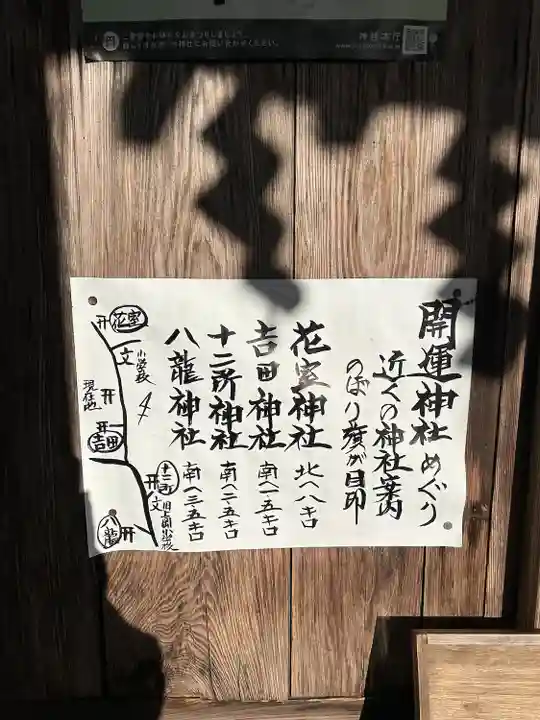 神社本庁
開運神社めぐり
近くの神社案内
のぼり旗が目印
花室神社 北へ八キロ
吉田神社 南へ一・五キロ
十二所神社 南へ二・五キロ
八龍神社 南へ三・五キロ
花室
文
小学校
現在地
吉田
十二所
文
八龍